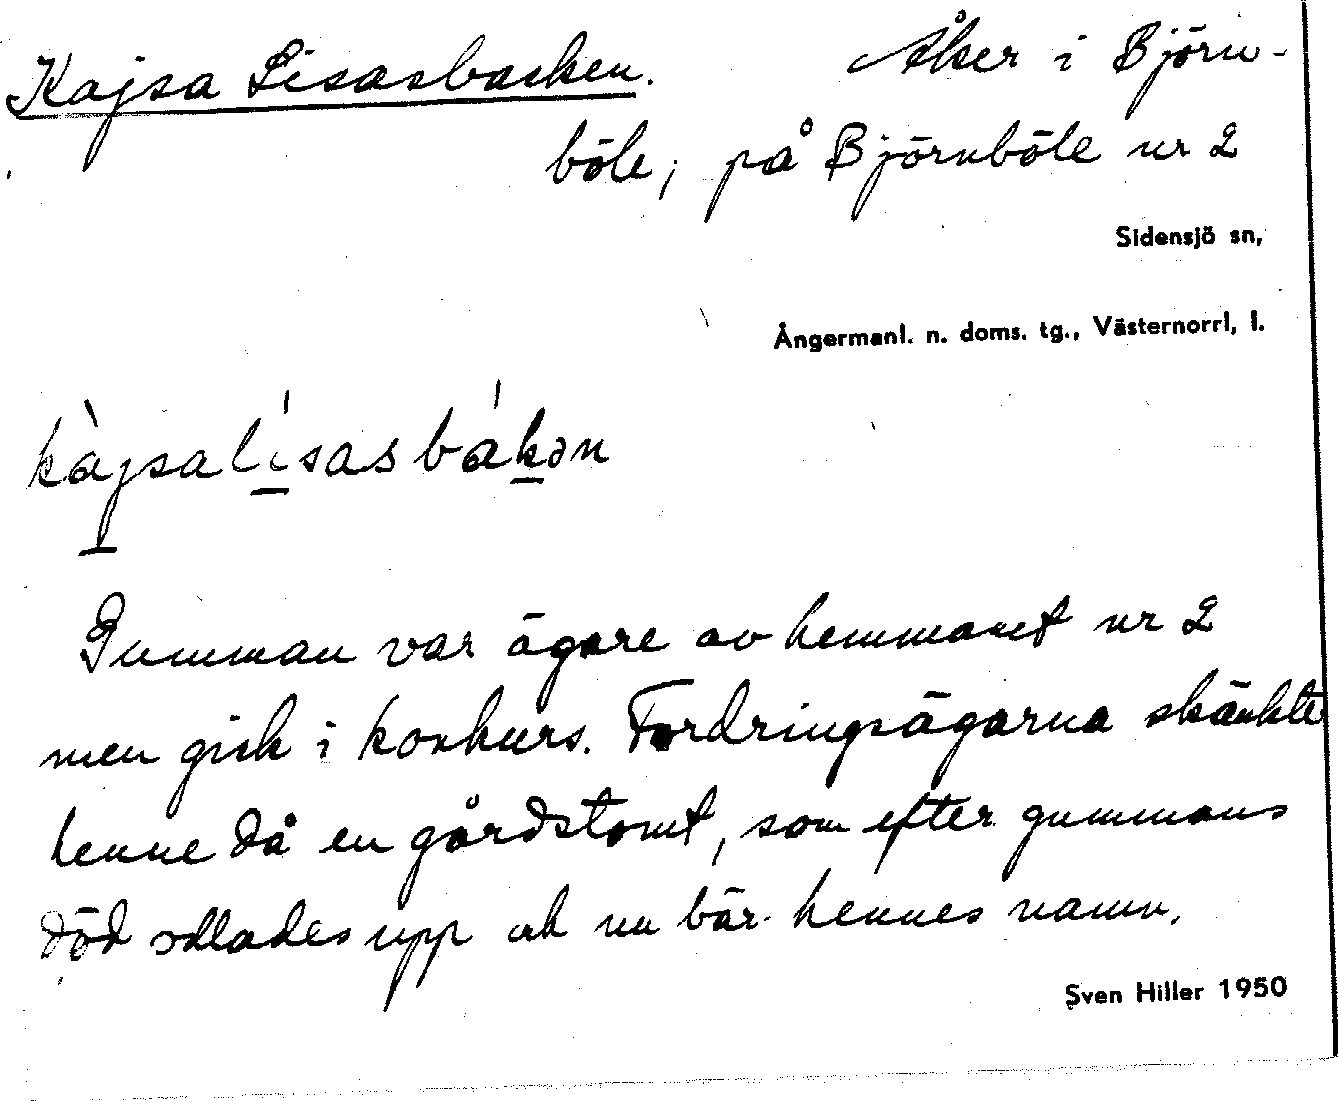 Kajsa Lisasbacken. Åker i Björn-
böle, på Björnböle nr 2
Sidensjö sn,
Ångermanl. n. doms. tg., Västernorrl, l.
kàjsalísasbákən
Gumman var ägare av hemmanet nr 2
men gick i konkurs. Fordringsägarna skänkte
henne då en gårdstomt, som efter gummans
död odlades upp och nu bär hennes namn.
Sven Hiller 1950